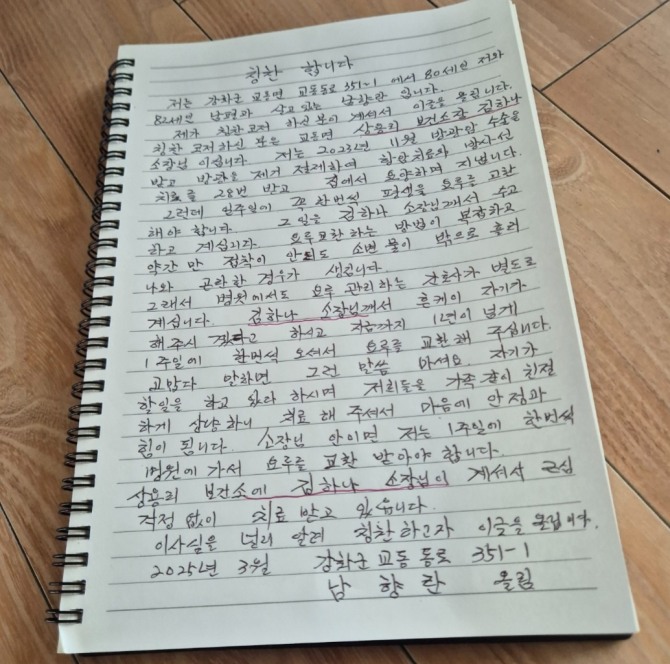 칭찬 합니다
저는 강화군 교동면 교동동로 351-1 에서 80세인 저와
82세인 남편과 살고 있는 남향란 입니다.
제가 칭찬코저 하신 분이 계셔서 이글을 올립니다.
칭찬 코저하신 분은 교동면 상용리 보건소장 김하나
소장님 이십니다. 저는 2023년 11월 방광암 수술을
받고 방광을 제거 절제하여 항암치료와 방사선
치료를 28번 받고 집에서 요양하며 지냅니다.
그런데 일주일에 꼭 한번씩 평생을 요루를 교환
해야 합니다. 그 일을 김하나 소장님께서 수고
하고 계십니다. 요루교환 하는 방법이 복잡하고
약간만 접착이 안되도 소변 물이 밖으로 흘러
나와 곤란한 경우가 생깁니다.
그래서 병원에서도 요루 관리하는 간호사가 별도로
계십니다. 김하나 소장님께서 흔케이 자기가
해 주시겠다고 하시고 지금까지 1년이 넘게
1주일에 한번씩 오셔서 요루를 교환해 주십니다.
고맙다 말하면 그런 말씀 마셔요 자기가
할일을 하고 있다 하시며 저희들을 가족같이 친절
하게 상냥하니 치료 해 주셔서 마음에 안정과
힘이 됩니다. 소장님 안이면 저는 1주일에 한번씩
병원에 가서 요루를 교환 받아야 합니다.
상용리 보건소에 김하나 소장님이 계셔서 근심
걱정 없이 치료 받고 있읍니다.
이사실을 널리 알려 칭찬하고자 이글을 올립니다.
2025년 3월 강화군 교동 동로 351-1
남 향 란 올림